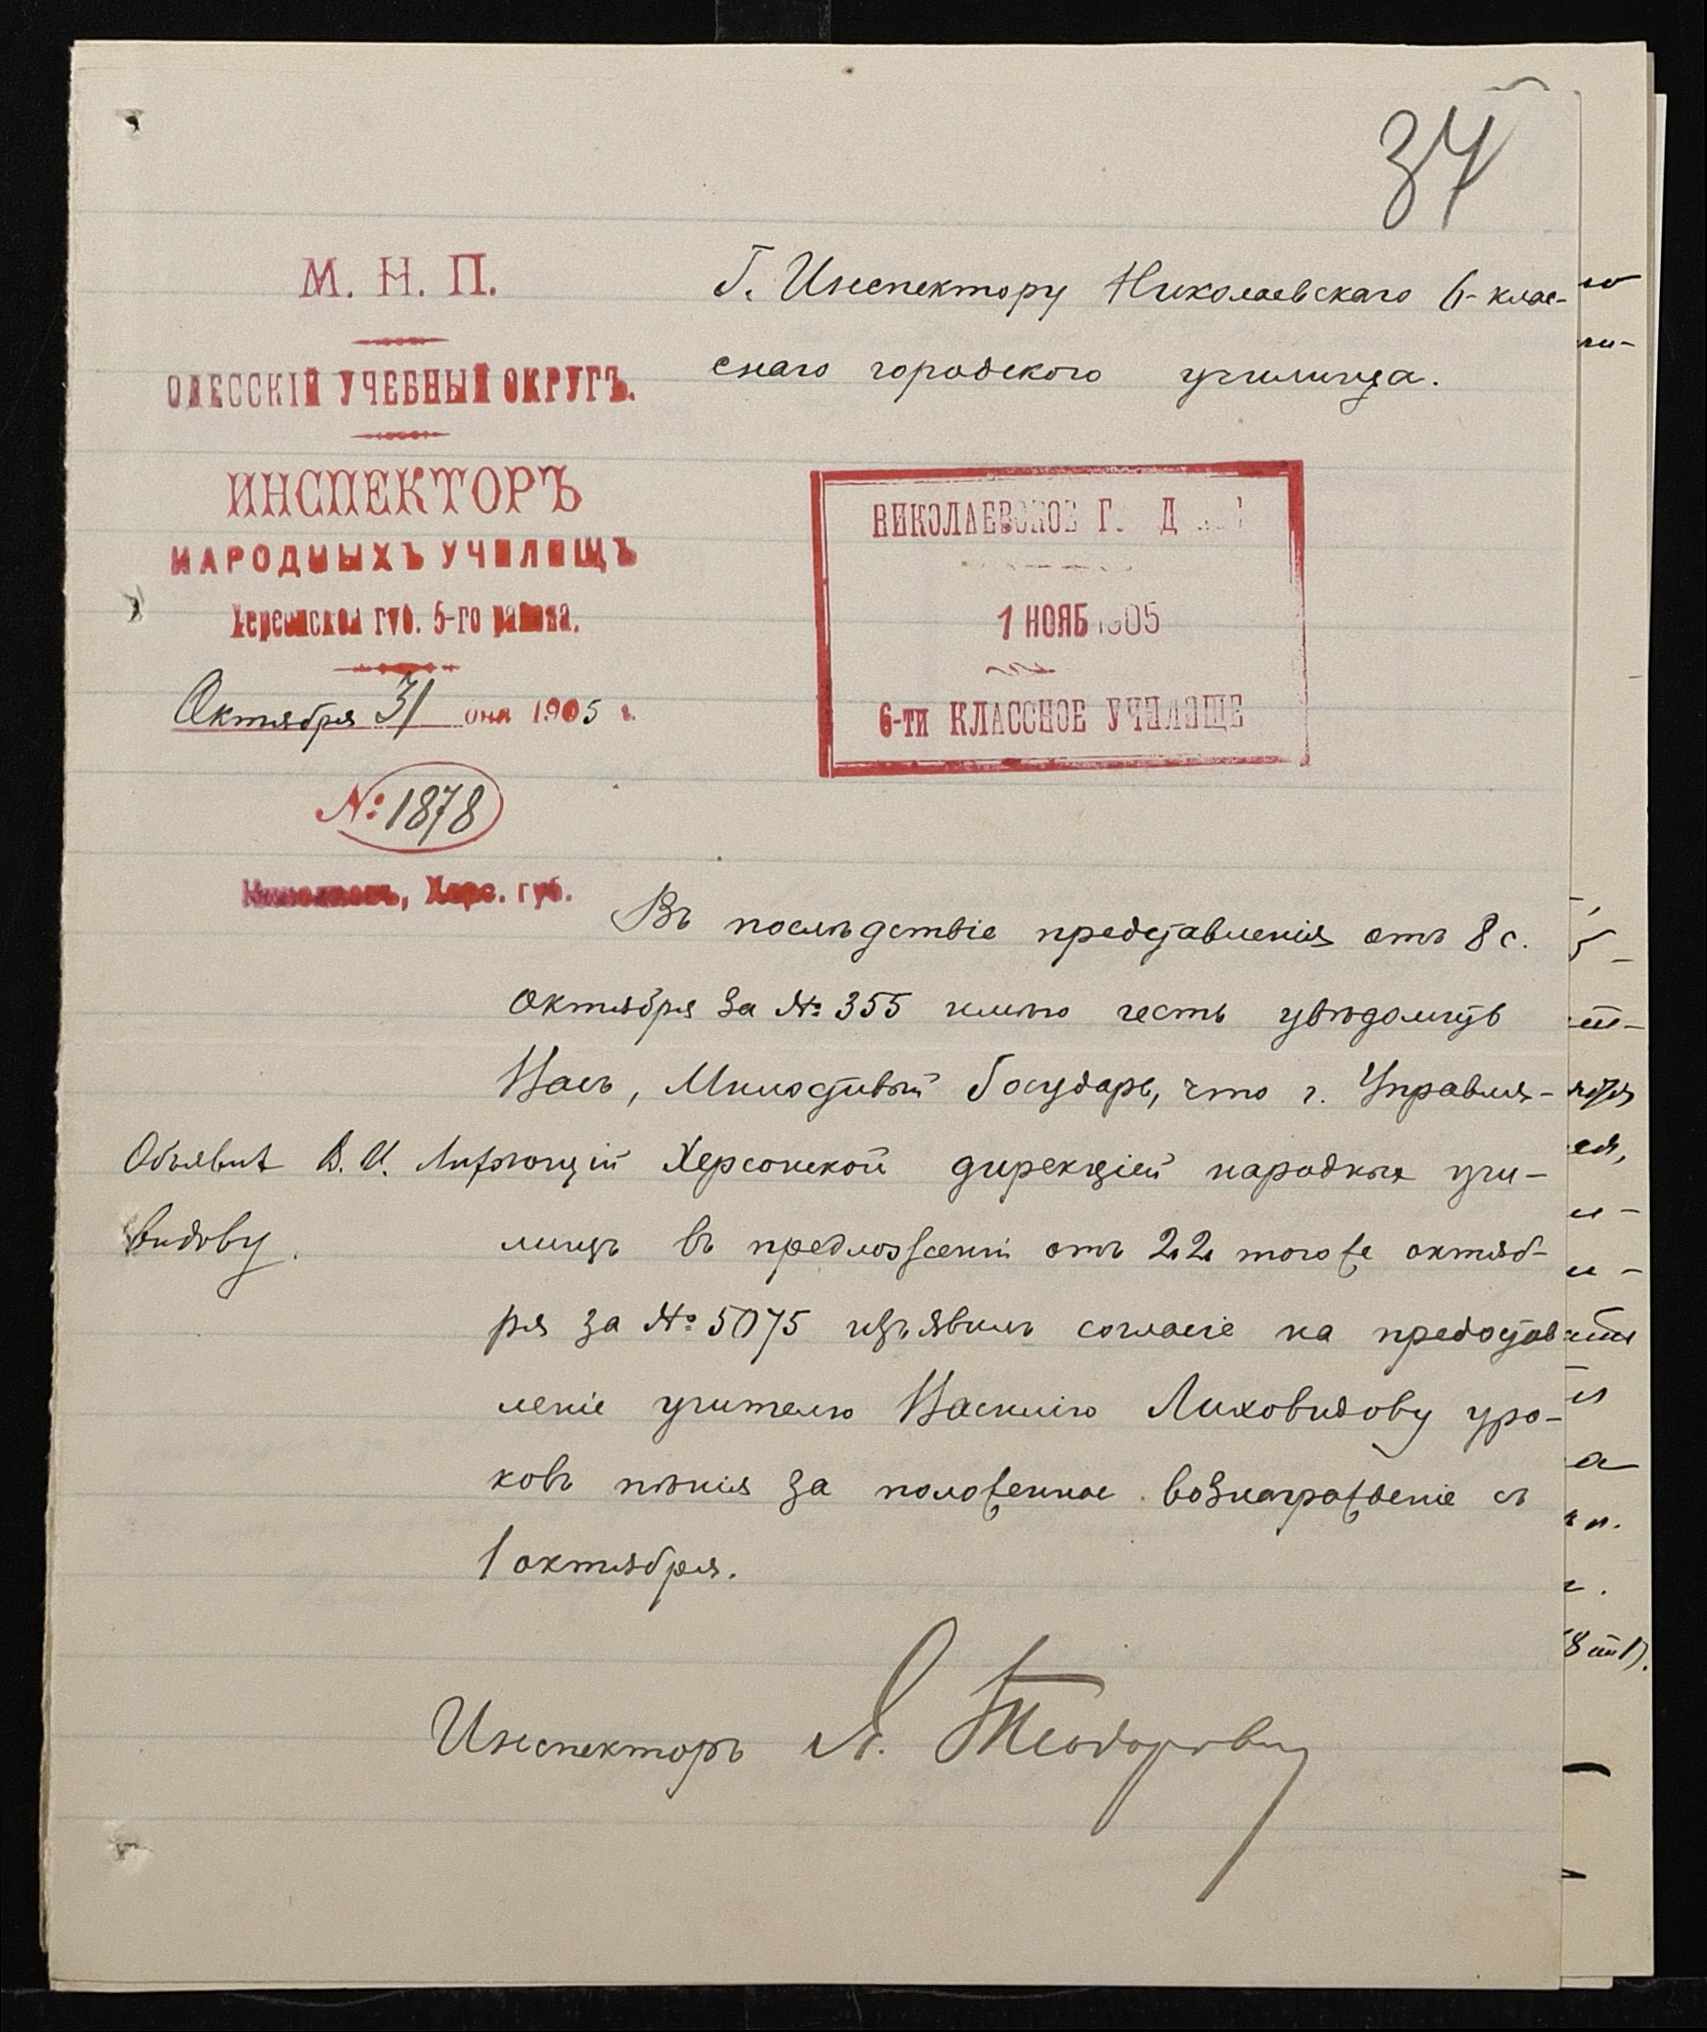 34
М. Н. П.
ОДЕССКІЙ УЧЕБНЫЙ ОКРУГЪ.
ИНСПЕКТОРЪ
НАРОДНЫХЪ УЧИЛИЩЪ
Херсонской губ. 5-го района.
Октября 31 дня 1905 г.
№ 1878
Николаевъ, Херс. губ.
Г. Инспектору Николаевскаго 6-клас-
снаго городского училища.
НИКОЛАЕВСКОЕ Г Д
1 НОЯБ 1905
6-ти КЛАССНОЕ УЧИЛИЩЕ
Въ послѣдствіе представленія отъ 8 с.
октября за № 355 имѣю честь увѣдомить
Васъ, Милостивый Государь, что г. Управля-
ющій Херсонской дирекціей народных учи-
лищъ въ предложеніи отъ 22 того же октяб-
ря за № 5075 изъявилъ согласіе на предостав
леніе учителю Василію Лиховидову уро-
ковъ пѣнія за положенное вознагражденіе съ
1 октября.
Объявить В. И. Лихо
видову.
Инспекторъ Я. Теодорович